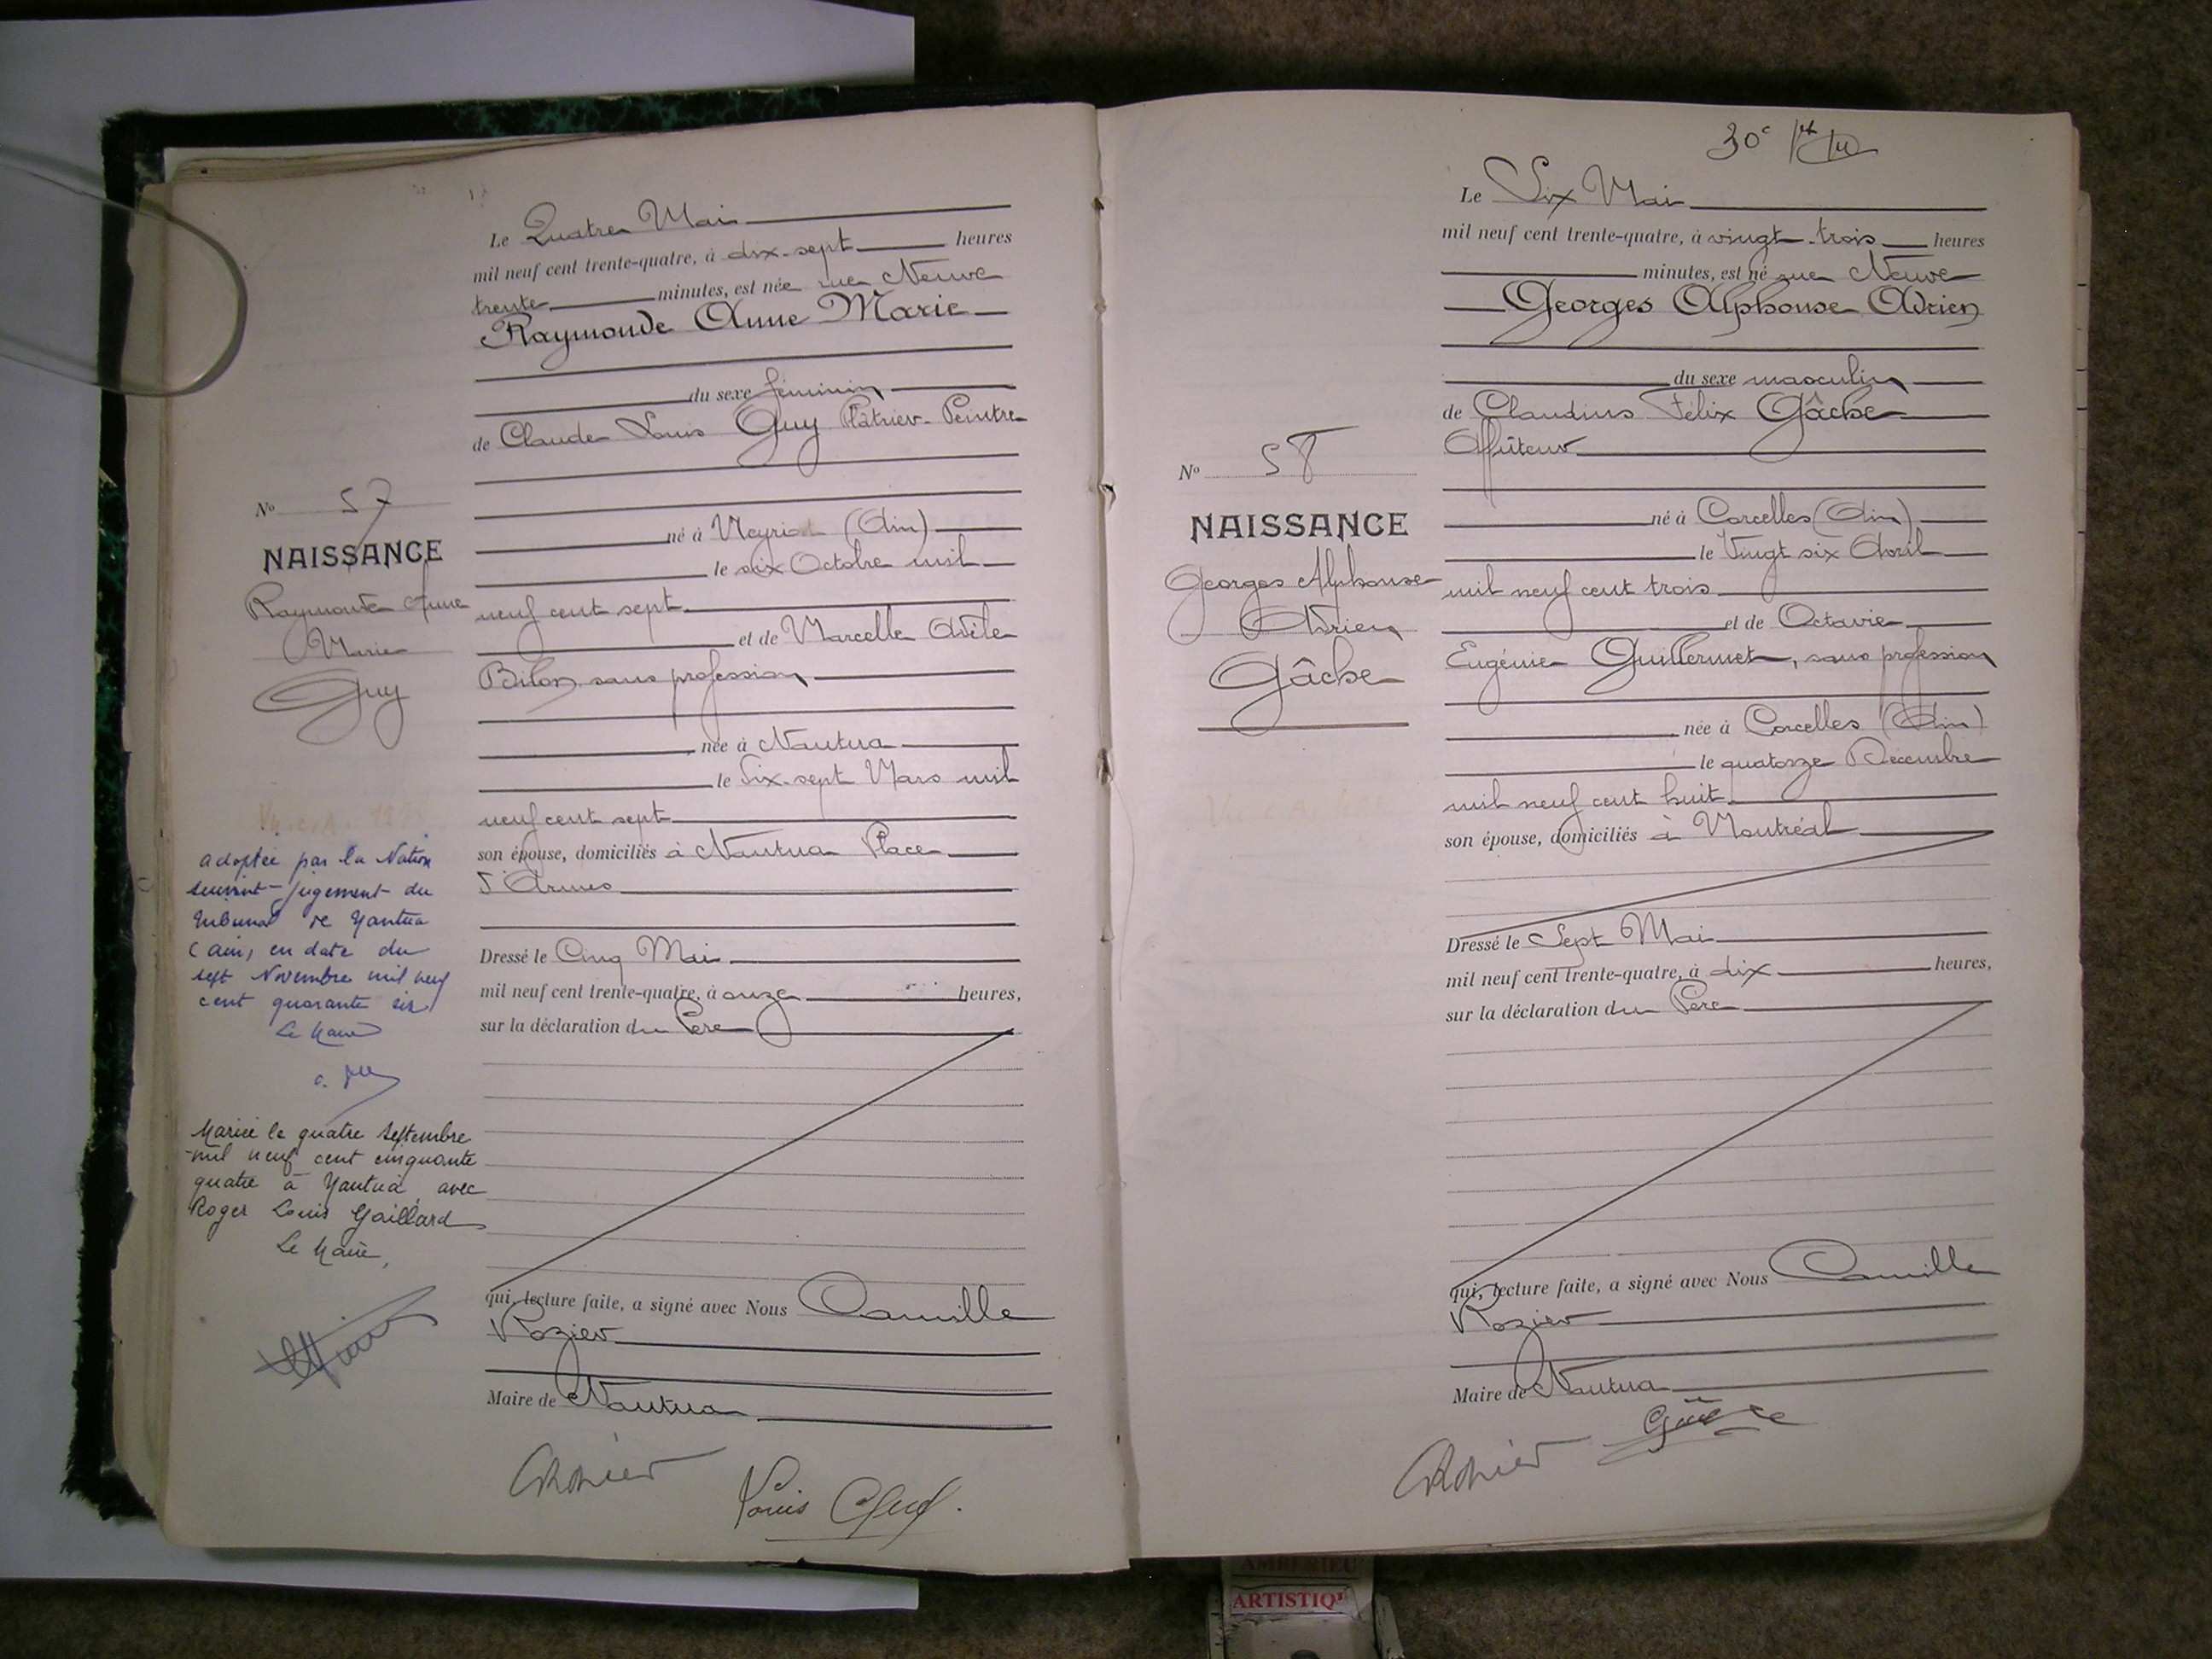 Le Quatre Mai
mil neuf cent trente-quatre, à dix-sept heures
trente minutes, est née rue Neuve
Raymonde Anne Marie
du sexe féminin
de Claude Louis Guy Plâtrier-Peintre
né à Meyriat (Ain)
le six Octobre mil
neuf cent sept
et de Marcelle Adèle
Bilon sans profession
née à Nantua
le Dix-sept Mars mil
neuf cent sept
son épouse, domiciliés à Nantua Place
d'Armes
Dressé le Cinq Mai
mil neuf cent trente-quatre, à onze heures,
sur la déclaration du Père
qui, lecture faite, a signé avec Nous Camille
Rozier
Maire de Nantua
Louis Guy.
No 57
NAISSANCE
Raymonde Anne
Marie
Guy
adoptée par la Nation
suivant jugement du
tribunal de Nantua
(ain) en date du
sept Novembre mil neuf
cent quarante six
Le Maire
Mariée le quatre septembre
mil neuf cent cinquante
quatre à Nantua avec
Roger Louis Gaillard
Le Maire,
30e
Le Six Mai
mil neuf cent trente-quatre, à vingt-trois heures
minutes, est né rue Neuve
Georges Alphonse Adrien
du sexe masculin
de Claudius Félix Gâche
Affûteur
né à Corcelles (Ain)
le Vingt six Avril
mil neuf cent trois
et de Octavie
Eugénie Guillermet, sans profession
née à Corcelles (Ain)
le quatorze Décembre
mil neuf cent huit
son épouse, domiciliés à Montréal
Dressé le Sept Mai
mil neuf cent trente-quatre, à dix heures,
sur la déclaration du Père
qui, lecture faite, a signé avec Nous Camille
Rozier
Maire de Nantua
Gâche
No 58
NAISSANCE
Georges Alphonse
Adrien
Gâche
AMBERIEU
ARTISTIQU